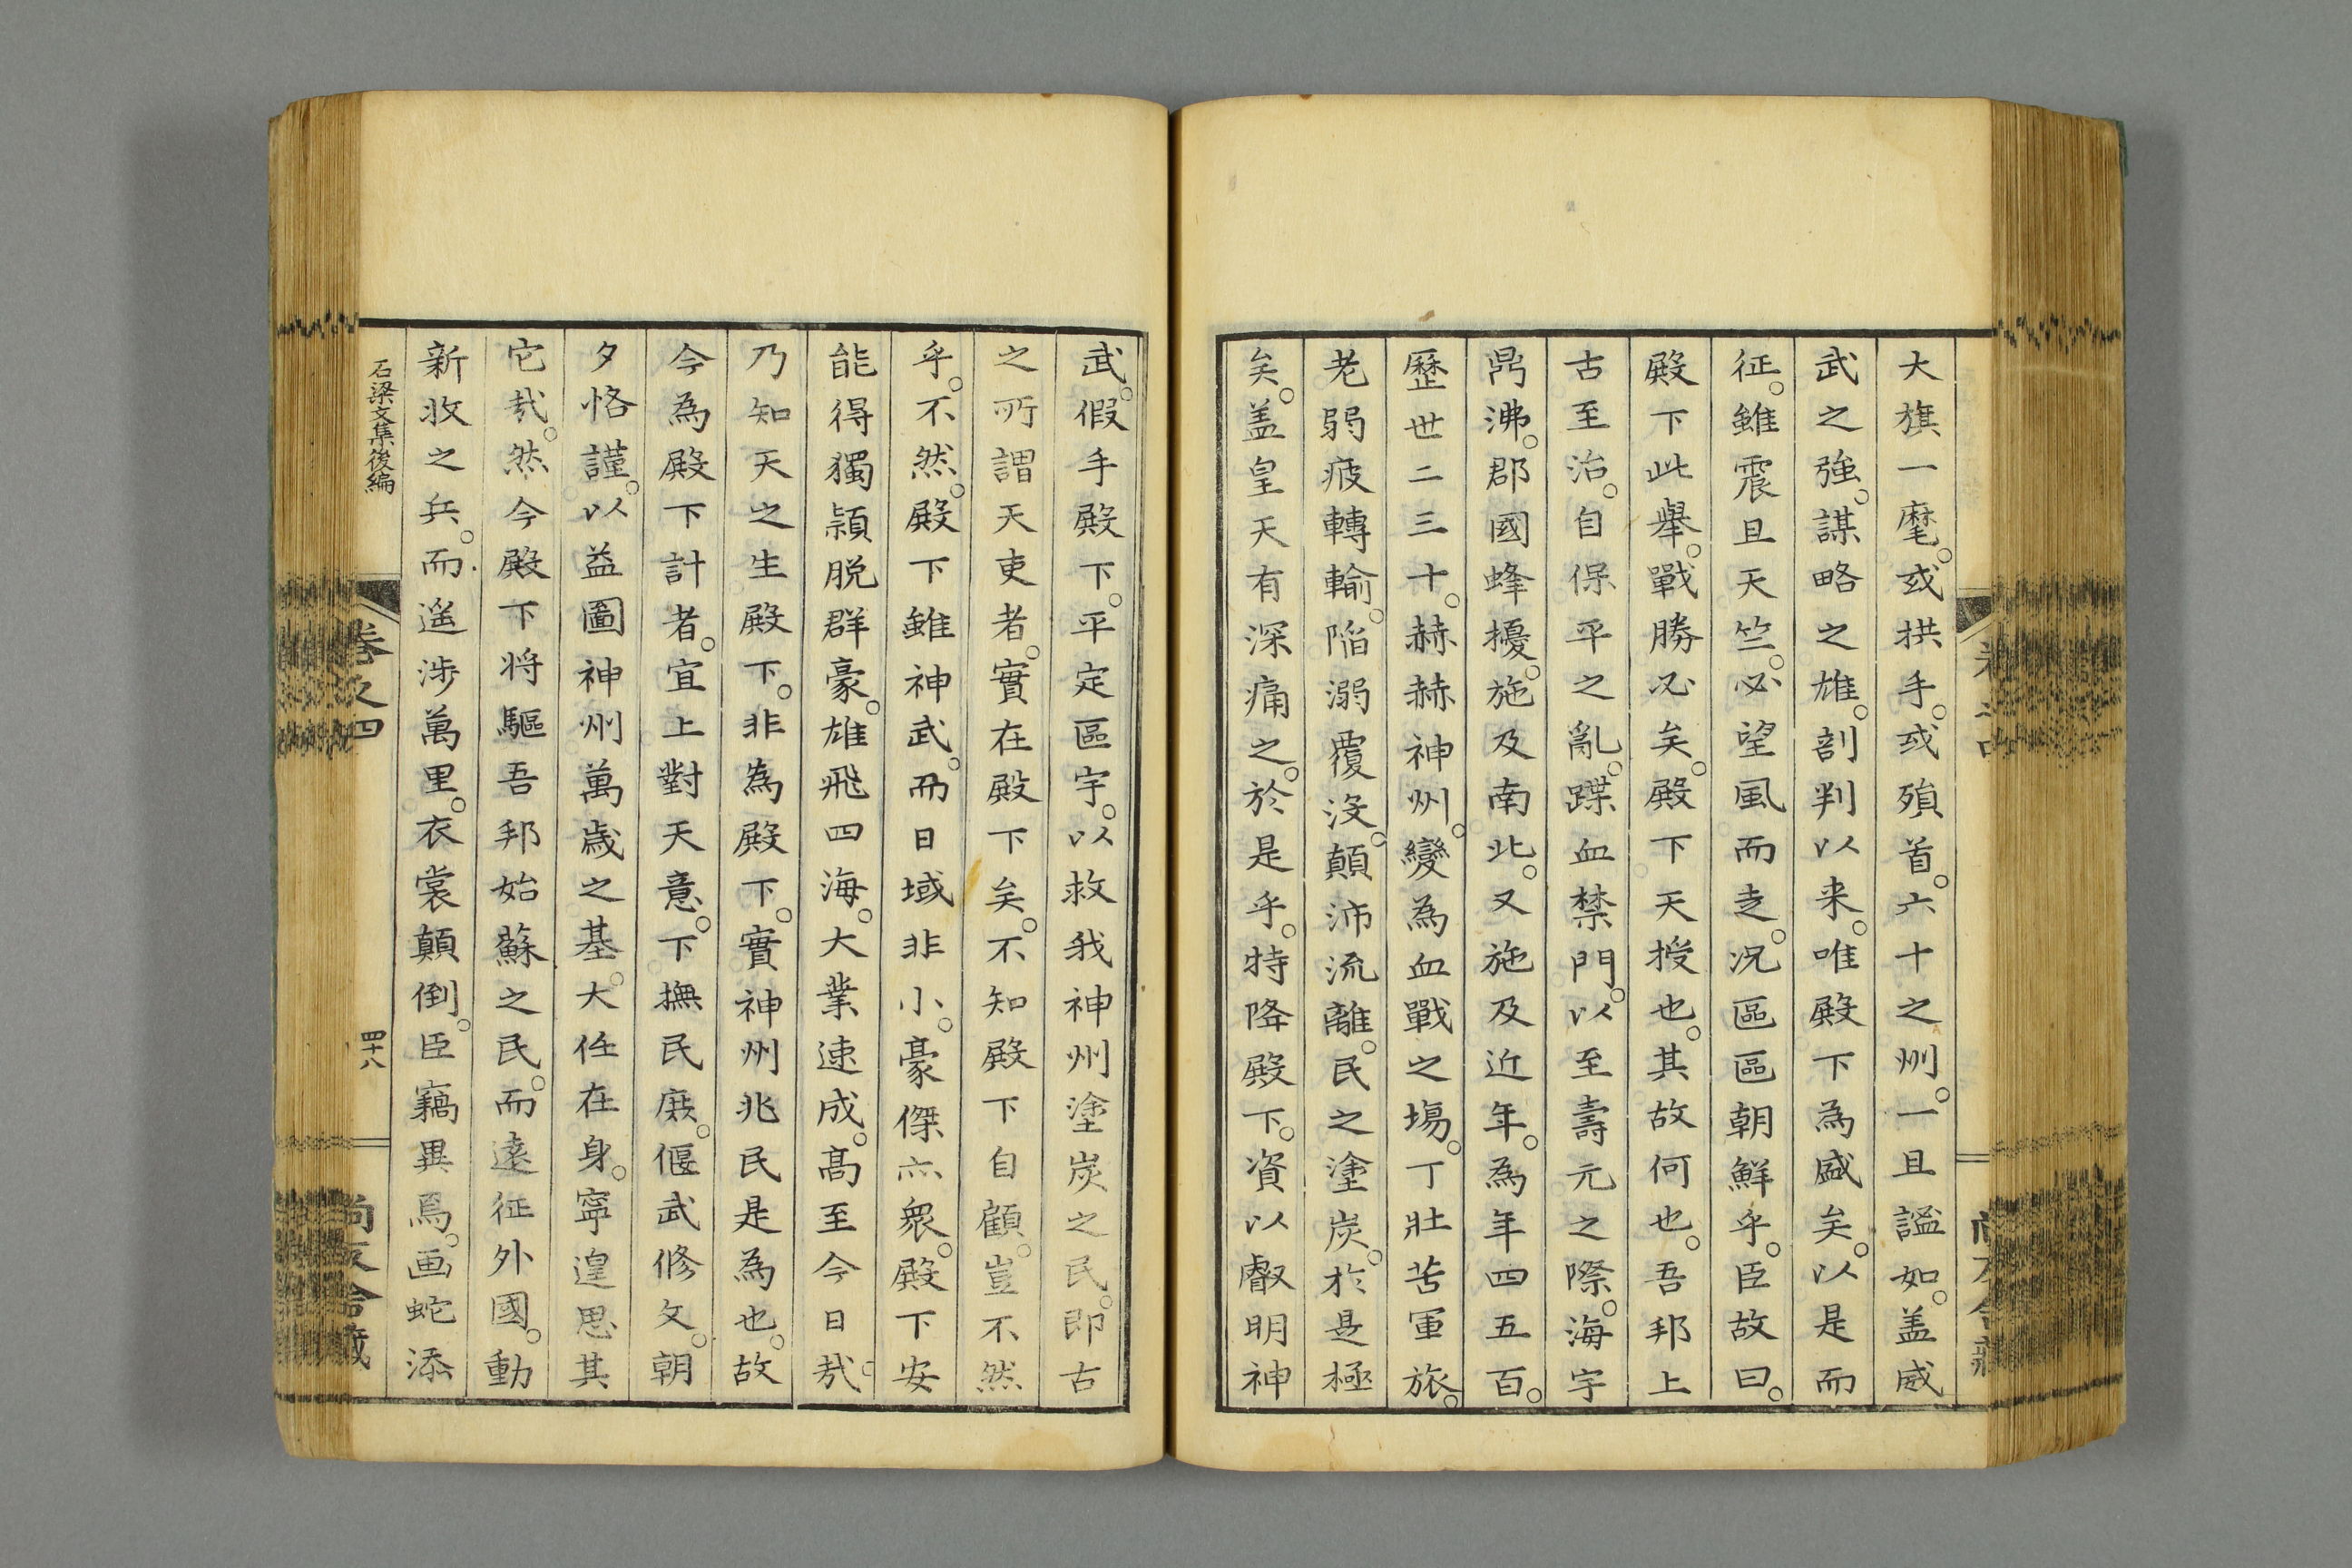 大旗一麾。或拱手。或殞首。六十之州。一且謐如。盖威
武之強。謀略之雄。剖判以来。唯殿下為盛矣。以是而
征。雖震且天竺。必望風而走。况區區朝鮮乎。臣故曰。
殿下此擧。戰勝必矣。殿下天授也。其故何也。吾邦上
古至治。自保平之亂。蹀血禁門。以至壽元之際。海宇
鼎沸。郡國蜂擾。施及南北。又施及近年。為年四五百。
歷世二三十。赫赫神州。變為血戰之場。丁壯苦軍旅。
老弱疲轉輸。陷溺覆沒。顛沛流離。民之塗炭。於是極
矣。盖皇天有深痛之。於是乎。特降殿下。資以叡明神
武。假手殿下。平定區宇。以救我神州塗炭之民。即古
之所謂天吏者。實在殿下矣。不知殿下自顧。豈不然
乎。不然。殿下雖神武。而日域非小。豪傑亦衆。殿下安
能得獨穎脱群豪。雄飛四海。大業速成。髙至今日㢤。
乃知天之生殿下。非為殿下。實神州兆民是為也。故
今為殿下計者。宜上對天意。下撫民庶。偃武修文。朝
夕恪謹。以益圖神州萬歲之基。大任在身。寧遑思其
它㢤。然今殿下将驅吾邦始蘇之民。而遠征外國。動
新收之兵。而遥渉萬里。衣裳顛倒。臣竊異焉。画蛇添
石梁文集後編
卷之四
四十八
尚友舍藏